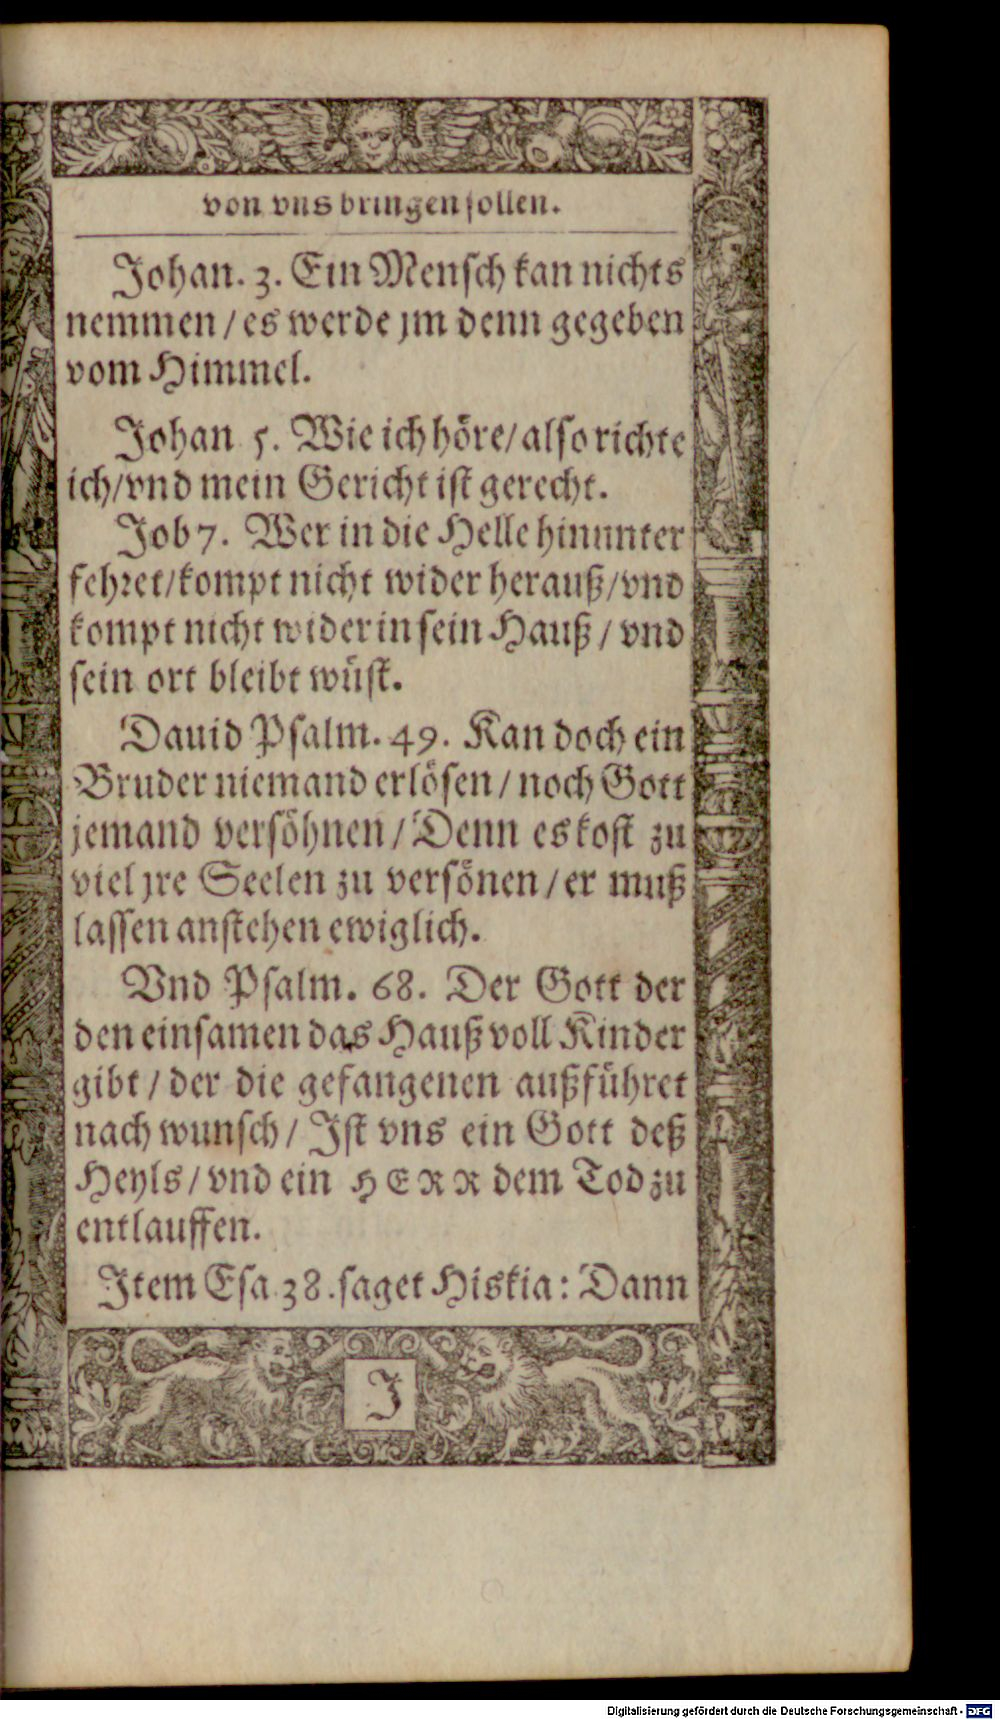 von vns bringen sollen.
Johan. 3. Ein Mensch kan nichts
nemmen / es werde jm denn gegeben
vom Himmel.
Johan 5. Wie ich höre / also richte
ich / vnd mein Gericht ist gerecht.
Job 7. Wer in die Helle hinunter
fehret / kompt nicht wider herauß / vnd
kompt nicht wider in sein Hauß / vnd
sein ort bleibt wüst.
Dauid Psalm. 49. Kan doch ein
Bruder niemand erlösen / noch Gott
jemand versöhnen / Denn es kost zu
viel jre Seelen zu versönen / er muß
lassen anstehen ewiglich.
Vnd Psalm. 68. Der Gott der
den einsamen das Hauß voll Kinder
gibt / der die gefangenen außführet
nach wunsch / Ist vns ein Gott deß
Heyls / vnd ein HERR dem Tod zu
entlauffen.
Item Esa 38. saget Hiskia: Dann
J
Digitalisierung gefördert durch die Deutsche Forschungsgemeinschaft - DFG